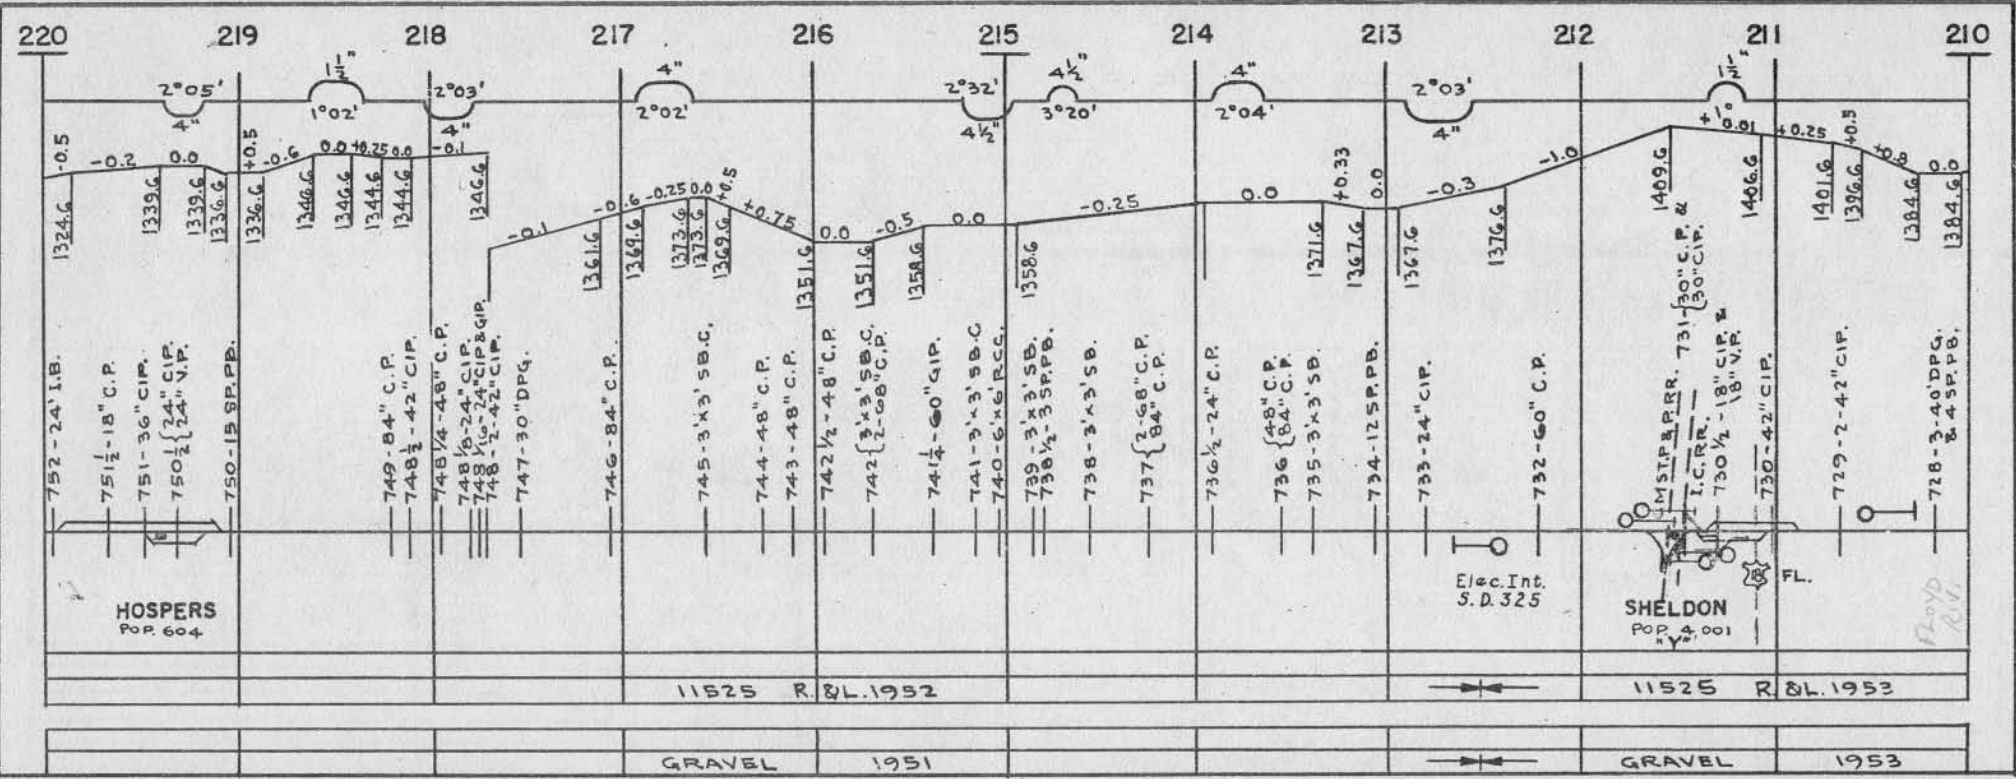 220 219 218 217 216 215 214 213 212 211 210
1½" 4" 4½" 4" 1½"
2°05' 2°03' 2°32' 2°03'
4" 1°02' 4" 2°02' 4½" 3°20' 2°04' 4" 1°
-0.5 -0.2 0.0 +0.5 -0.6 0.0 +0.25 0.0 -0.1 -0.1 -0.6 -0.25 0.0 +0.5 +0.75 0.0 -0.5 0.0 -0.25 0.0 +0.33 0.0 -0.3 -1.0 +0.01 +0.25 +0.5 +0.6 0.0
1324.6 1339.6 1339.6 1336.6 1336.6 1346.6 1346.6 1344.6 1344.6 1346.6 1361.6 1369.6 1373.6 1373.6 1369.6 1351.6 1351.6 1358.6 1358.6 1371.6 1367.6 1367.6 1376.6 1409.6 1406.6 1401.6 1396.6 1384.6 1384.6
752-24' I.B.
751½-18" C.P.
751-36" CIP.
750½ {24" CIP.
24" V.P.
750-15 SP. PB.
749-84" C.P.
748½-42" CIP.
748¼-48" C.P.
748⅛-24" CIP.
748 1/16-24" CIP & GIP.
748-2-42" CIP.
747-30" DPG.
746-84" C.P.
745-3'x3' SB.C.
744-48" C.P.
743-48" C.P.
742½-48" C.P.
742 {3'x3' SB.C.
2-68" C.P.
741¼-60" GIP.
741-3'x3' SB.C
740-6'x6' RCC.
739-3'x3' SB.
738½-3 SP. PB.
738-3'x3' SB.
737 {2-68" C.P.
84" C.P.
736½-24" C.P.
736 {48" C.P.
84" C.P.
735-3'x3' SB.
734-12 SP. PB.
733-24" CIP.
732-60" C.P.
M.ST.P.&P.RR.
731-{30" C.P. &
30" CIP.
I.C.RR.
730½-18" CIP. &
18" V.P.
730-42" CIP.
729-2-42" CIP.
728-3-40' DPG.
& 4 SP. PB.
Elec. Int.
S.D. 325
FL.
HOSPERS
POP. 604
SHELDON
POP. 4,001
"Y"
FLOYD
RIV.
11525 R.&L. 1952 11525 R.&L. 1953
GRAVEL 1951 GRAVEL 1953